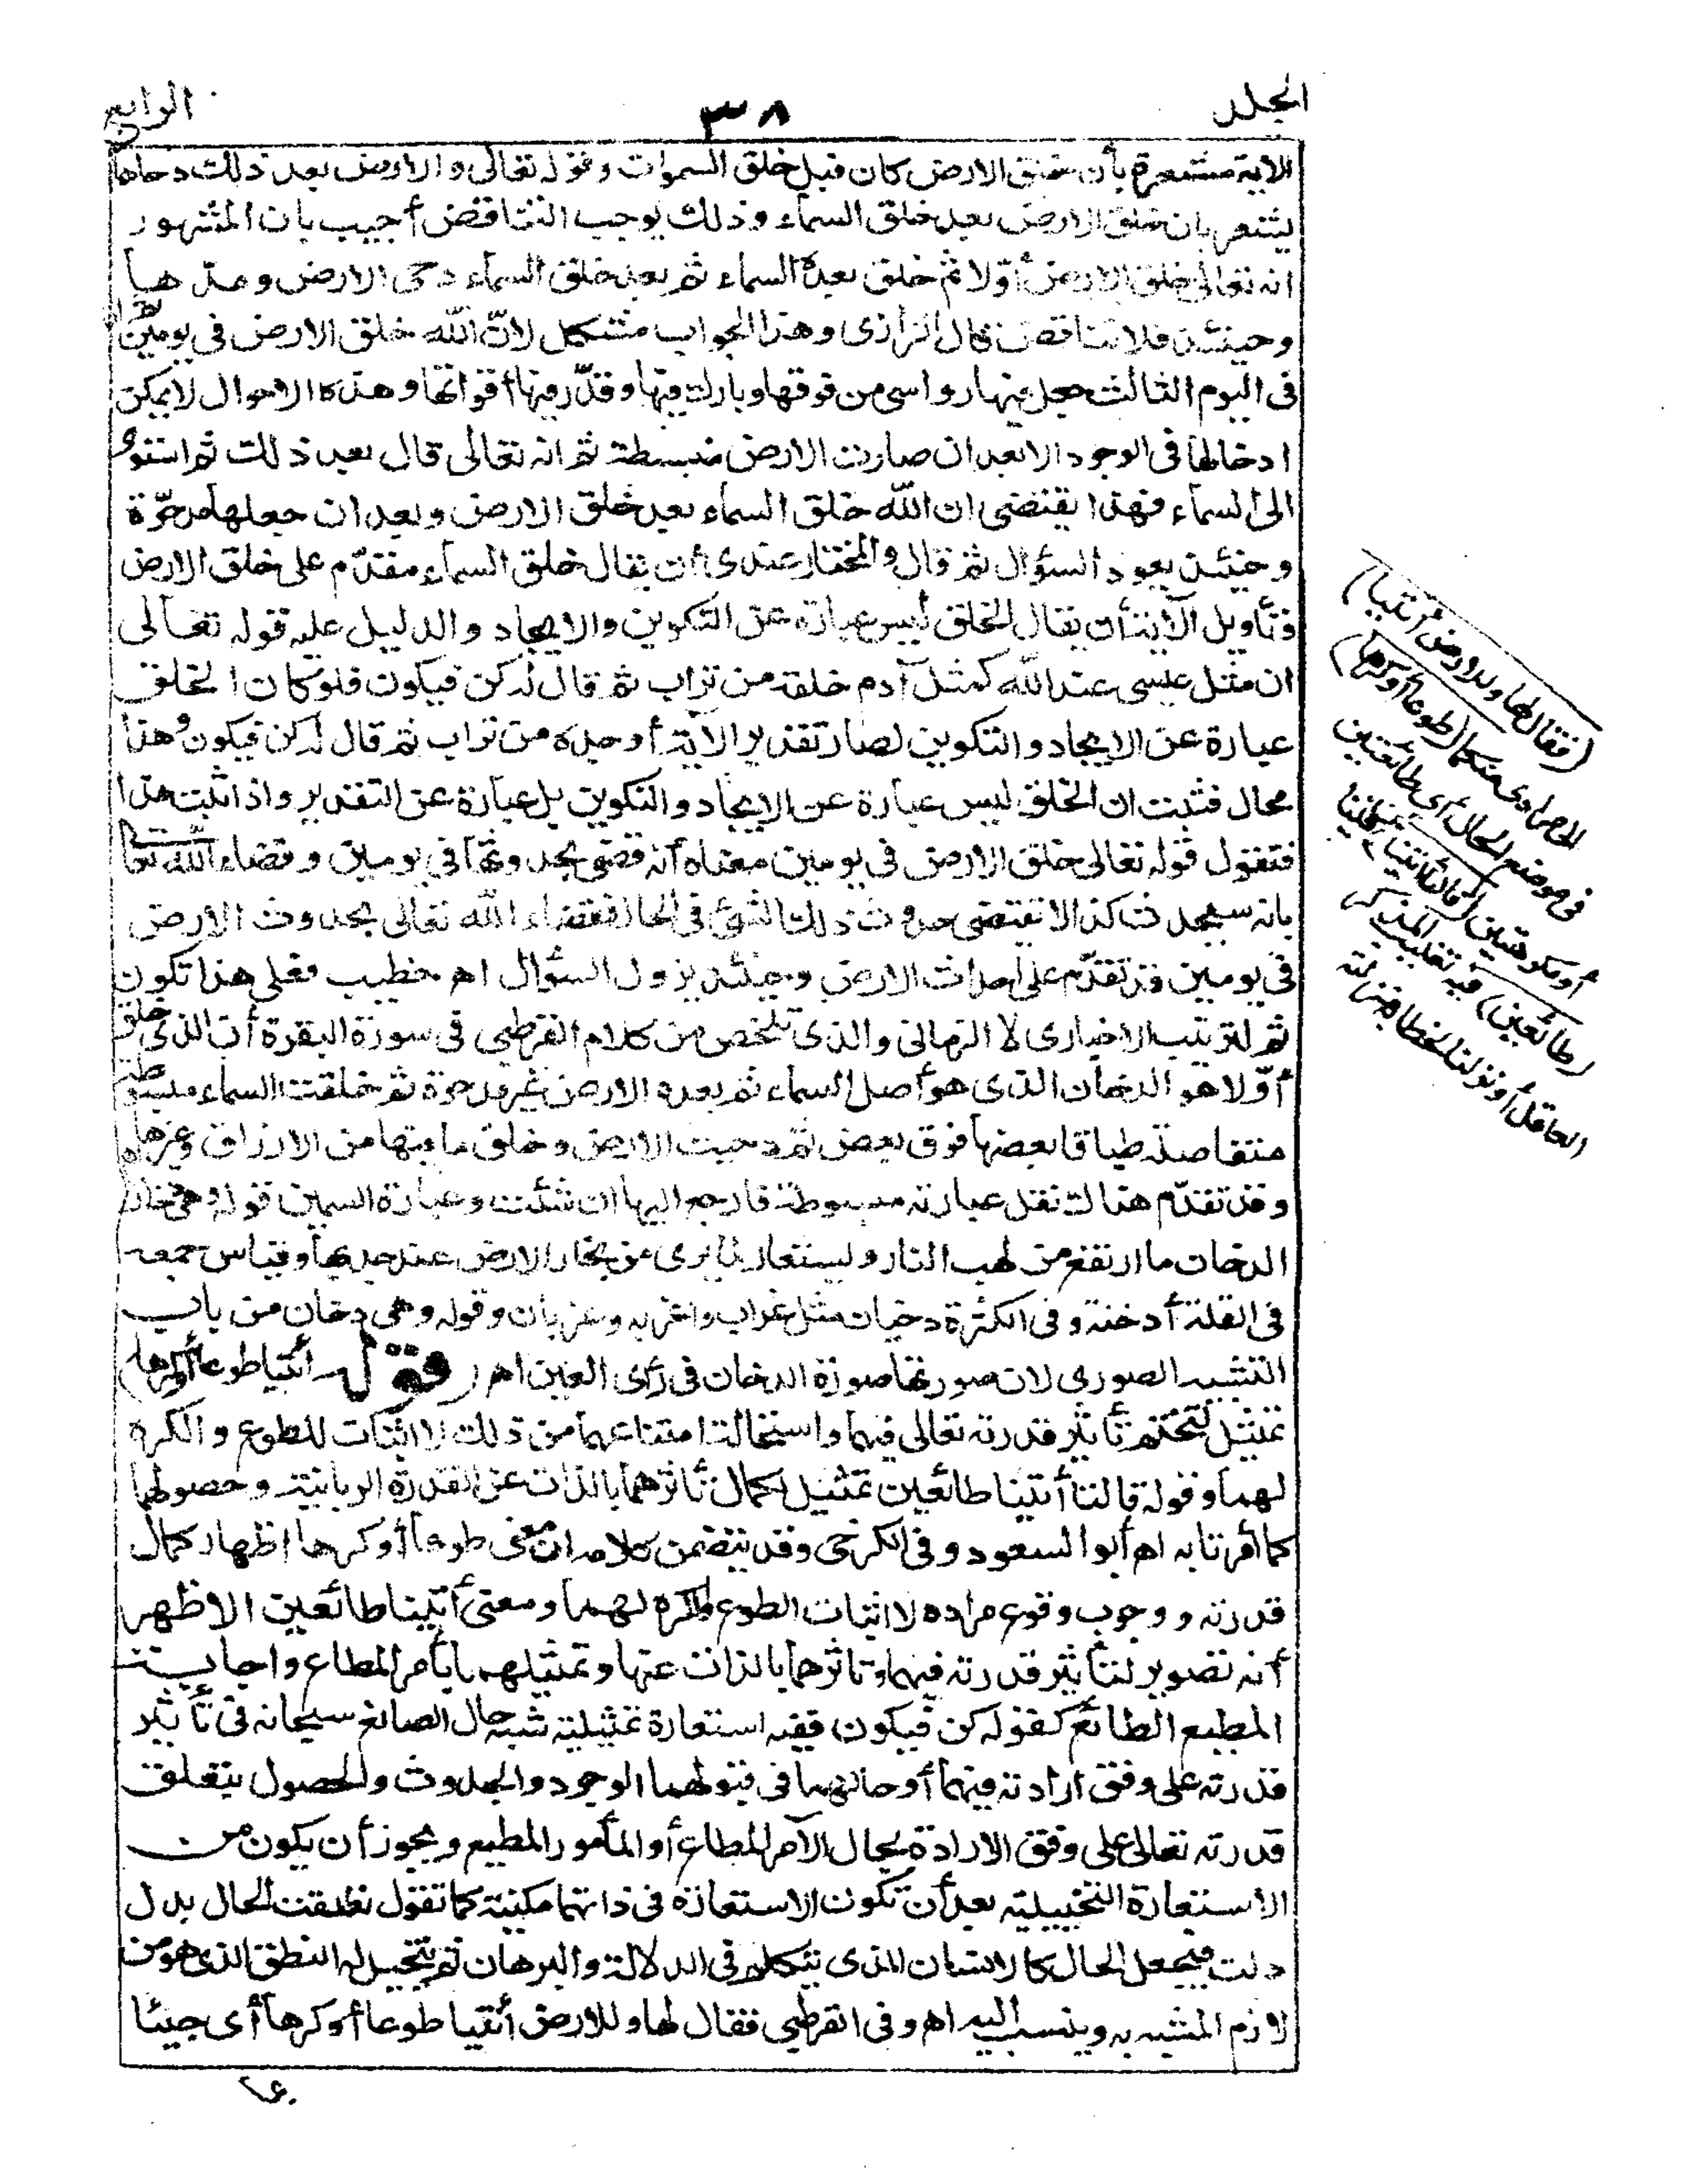 الجلد
٣٨
الرابع
الاية مشعرة بأن خلق الارض كان قبل خلق السموات وقوله تعالى والارض بعد ذلك دحاها
يشعر بان خلق الارض بعد خلق السماء وذلك يوجب التناقض أجيب بان المشهور
انه تعالى خلق الارض أولا ثم خلق بعده السماء ثم بعد خلق السماء دحى الارض ومدها
وحينئذ فلا تناقض قال الرازى وهذا الجواب مشكل لانّ الله خلق الارض فى يومين ثم انه
فى اليوم الثالث جعل فيها رواسى من فوقها وبارك فيها وقدّر فيها أقواتها وهذه الاحوال لا يمكن
ادخالها فى الوجود الا بعد ان صارت الارض منبسطة ثم انه تعالى قال بعد ذلك ثم استوى
الى السماء فهذا يقتضى ان الله خلق السماء بعد خلق الارض وبعد ان جعلها مدحوّة
وحينئذ يعود السؤال ثم قال والمختار عندى أن يقال خلق السماء مقدّم على خلق الارض
وتأويل الآية أن يقال الخلق ليس عبارة عن التكوين والايجاد والدليل عليه قوله تعالى
ان مثل عيسى عند الله كمثل آدم خلقه من تراب ثم قال له كن فيكون فلو كان الخلق
عبارة عن الايجاد والتكوين لصار تقدير الاية أوجده من تراب ثم قال له كن فيكون وهذا
محال فثبت ان الخلق ليس عبارة عن الايجاد والتكوين بل عبارة عن التقدير واذا ثبت هذا
فنقول قوله تعالى خلق الارض فى يومين معناه أنه قضى بحدوثها فى يومين وقضاء الله تعالى
بانه سيحدث كذا لا يقتضى حدوث ذلك الشئ فى الحال فقضاء الله تعالى بحدوث الارض
فى يومين قد تقدّم على احداث الارض وحينئذ يزول السؤال اهـ خطيب فعلى هذا تكون
ثم للترتيب الاخبارى لا الزمانى والذى تلخص من كلام القرطبى فى سورة البقرة أن الذى خلق
أوّلا هو الدخان الذى هو أصل السماء ثم بعده الارض غير مدحوة ثم خلقت السماء مبسوطة
متفاصلة طباقا بعضها فوق بعض ثم دحيت الارض وخلق ما فيها من الارزاق وغيرها
وقد تقدّم هناك نقل عبارته مبسوطة فارجع اليها ان شئت وعبارة السمين قوله وهى دخان
الدخان ما ارتفع من لهب النار ويستعار لما يرى من بخار الارض عند جدبها وقياس جمعه
فى القلة أدخنة وفى الكثرة دخيان مثل غراب واغربه وغربان وقوله وهى دخان من باب
التشبيه الصورى لان صورتها صورة الدخان فى رأى العين اهـ (قوله ائتيا طوعا أو كرها)
تمثيل لتحتم تأثير قدرته تعالى فيهما واستحالة امتناعهما من ذلك لا اثبات للطوع والكره
لهما وقوله قالتا أتينا طائعين تمثيل لكمال تأثرهما بالذات عن القدرة الربانية وحصولهما
كما أمرتا به اهـ أبو السعود وفى الكرخى وقد يتضمن كلامه ان معنى طوعا أو كرها اظهار كمال
قدرته ووجوب وقوع مراده لا اثبات الطوع والكره لهما ومعنى أتينا طائعين الاظهر
أنه تصوير لتأثير قدرته فيهما وتاثرهما بالذات عنها وتمثيلهما بأمر المطاع واجابة
المطيع الطائع كقوله كن فيكون ففيه استعارة تمثيلية شبه حال الصانع سبحانه فى تأثير
قدرته على وفق ارادته فيهما أو حالهما فى قبولهما الوجود والحدوث والحصول بتعلق
قدرته تعالى على وفق الارادة بحال الآمر المطاع أو المأمور المطيع ويجوز أن يكون من
الاستعارة التخييلية بعد أن تكون الاستعارة فى ذاتها مكنية كما تقول نطقت الحال بدل
دلت فيجعل الحال كالانسان الذى يتكلم فى الدلالة والبرهان ثم يتخيل له النطق الذى هو من
لازم المشبه به وينسب اليه اهـ وفى القرطبى فقال لها وللارض ائتيا طوعا أو كرها أى جيئا
(فقال لها وللارض ائتيا)
الى مرادى منكما (طوعا أو كرها)
فى موضع الحال أى طائعتين
أو مكرهتين (قالتا أتينا) بمن فينا
(طائعين) فيه تغليب المذكر
العاقل أو نزلتا لخطابهما منزلته